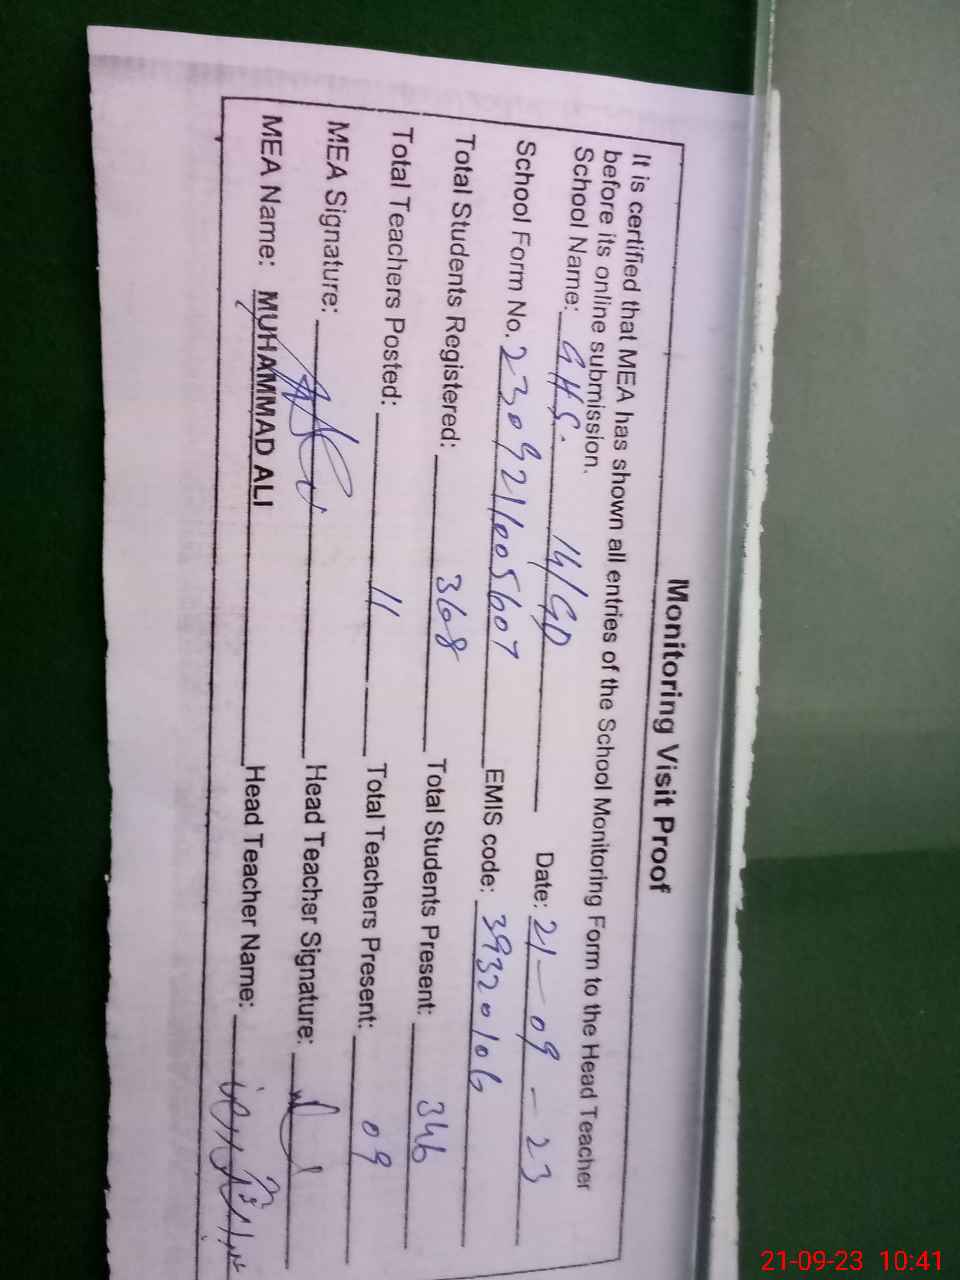 Monitoring Visit Proof
It is certified that MEA has shown all entries of the School Monitoring Form to the Head Teacher
before its online submission.
School Name: GHS. 14/GD Date: 21-09-23
School Form No. 2309211005607 EMIS code: 39320106
Total Students Registered: 368 Total Students Present: 346
Total Teachers Posted: 11 Total Teachers Present: 09
MEA Signature: Head Teacher Signature:
MEA Name: MUHAMMAD ALI Head Teacher Name:
21-09-23 10:41